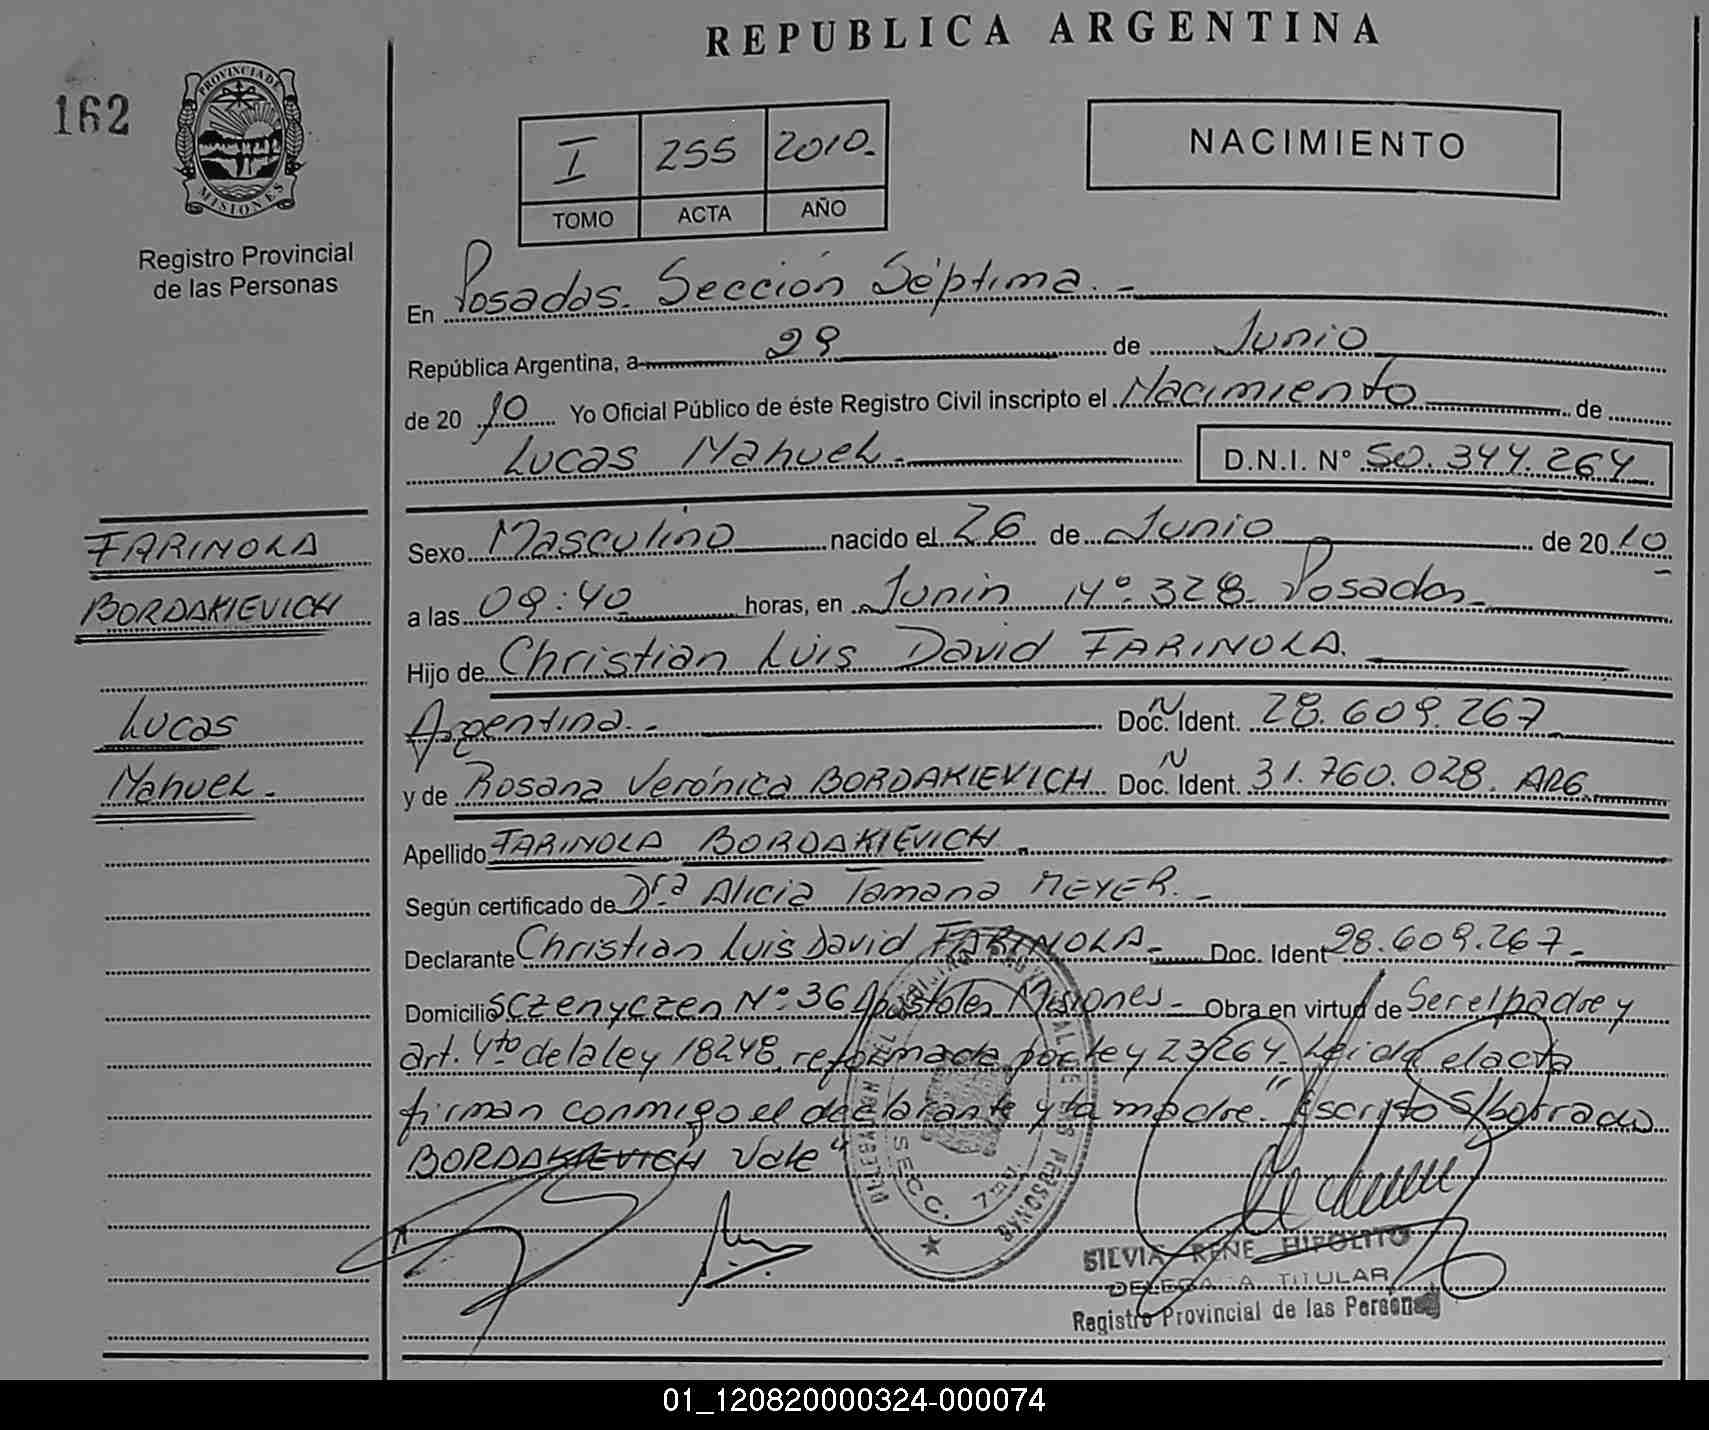 REPUBLICA ARGENTINA
162
PROVINCIA DE MISIONES
Registro Provincial
de las Personas
I 255 2010.-
TOMO ACTA AÑO
NACIMIENTO
En Posadas. Sección Séptima.-
República Argentina, a 29 de Junio
de 2010 Yo Oficial Público de éste Registro Civil inscripto el Nacimiento de
Lucas Mahuel.- D.N.I. N° 50.344.264
FARINOLA
BORDAKIEVICH
Lucas
Mahuel.-
Sexo Masculino nacido el 26 de Junio de 2010
a las 09:40 horas, en Junin N° 328 Posadas.-
Hijo de Christian Luis David FARINOLA.
Argentina.- Doc. N Ident. 28.609.267
y de Rosana Verónica BORDAKIEVICH Doc. N Ident. 31.760.028. ARG.
Apellido FARINOLA BORDAKIEVICH.-
Según certificado de Dra Alicia Tamana MEYER.-
Declarante Christian Luis David FARINOLA.- Doc. Ident 28.609.267.-
Domicilio SCZENYCZEN N° 36 Apostoles Misiones.- Obra en virtud de Ser el padre y
art. 4to de la ley 18248 reformada por ley 23264.- Leida el acta
firman conmigo el declarante y la madre." Escrito S/borrado
BORDAKIEVICH Vale"
SECC. 7ma
SILVIA RENE HIPOLITO
DELEGADA TITULAR
Registro Provincial de las Personas
01_120820000324-000074